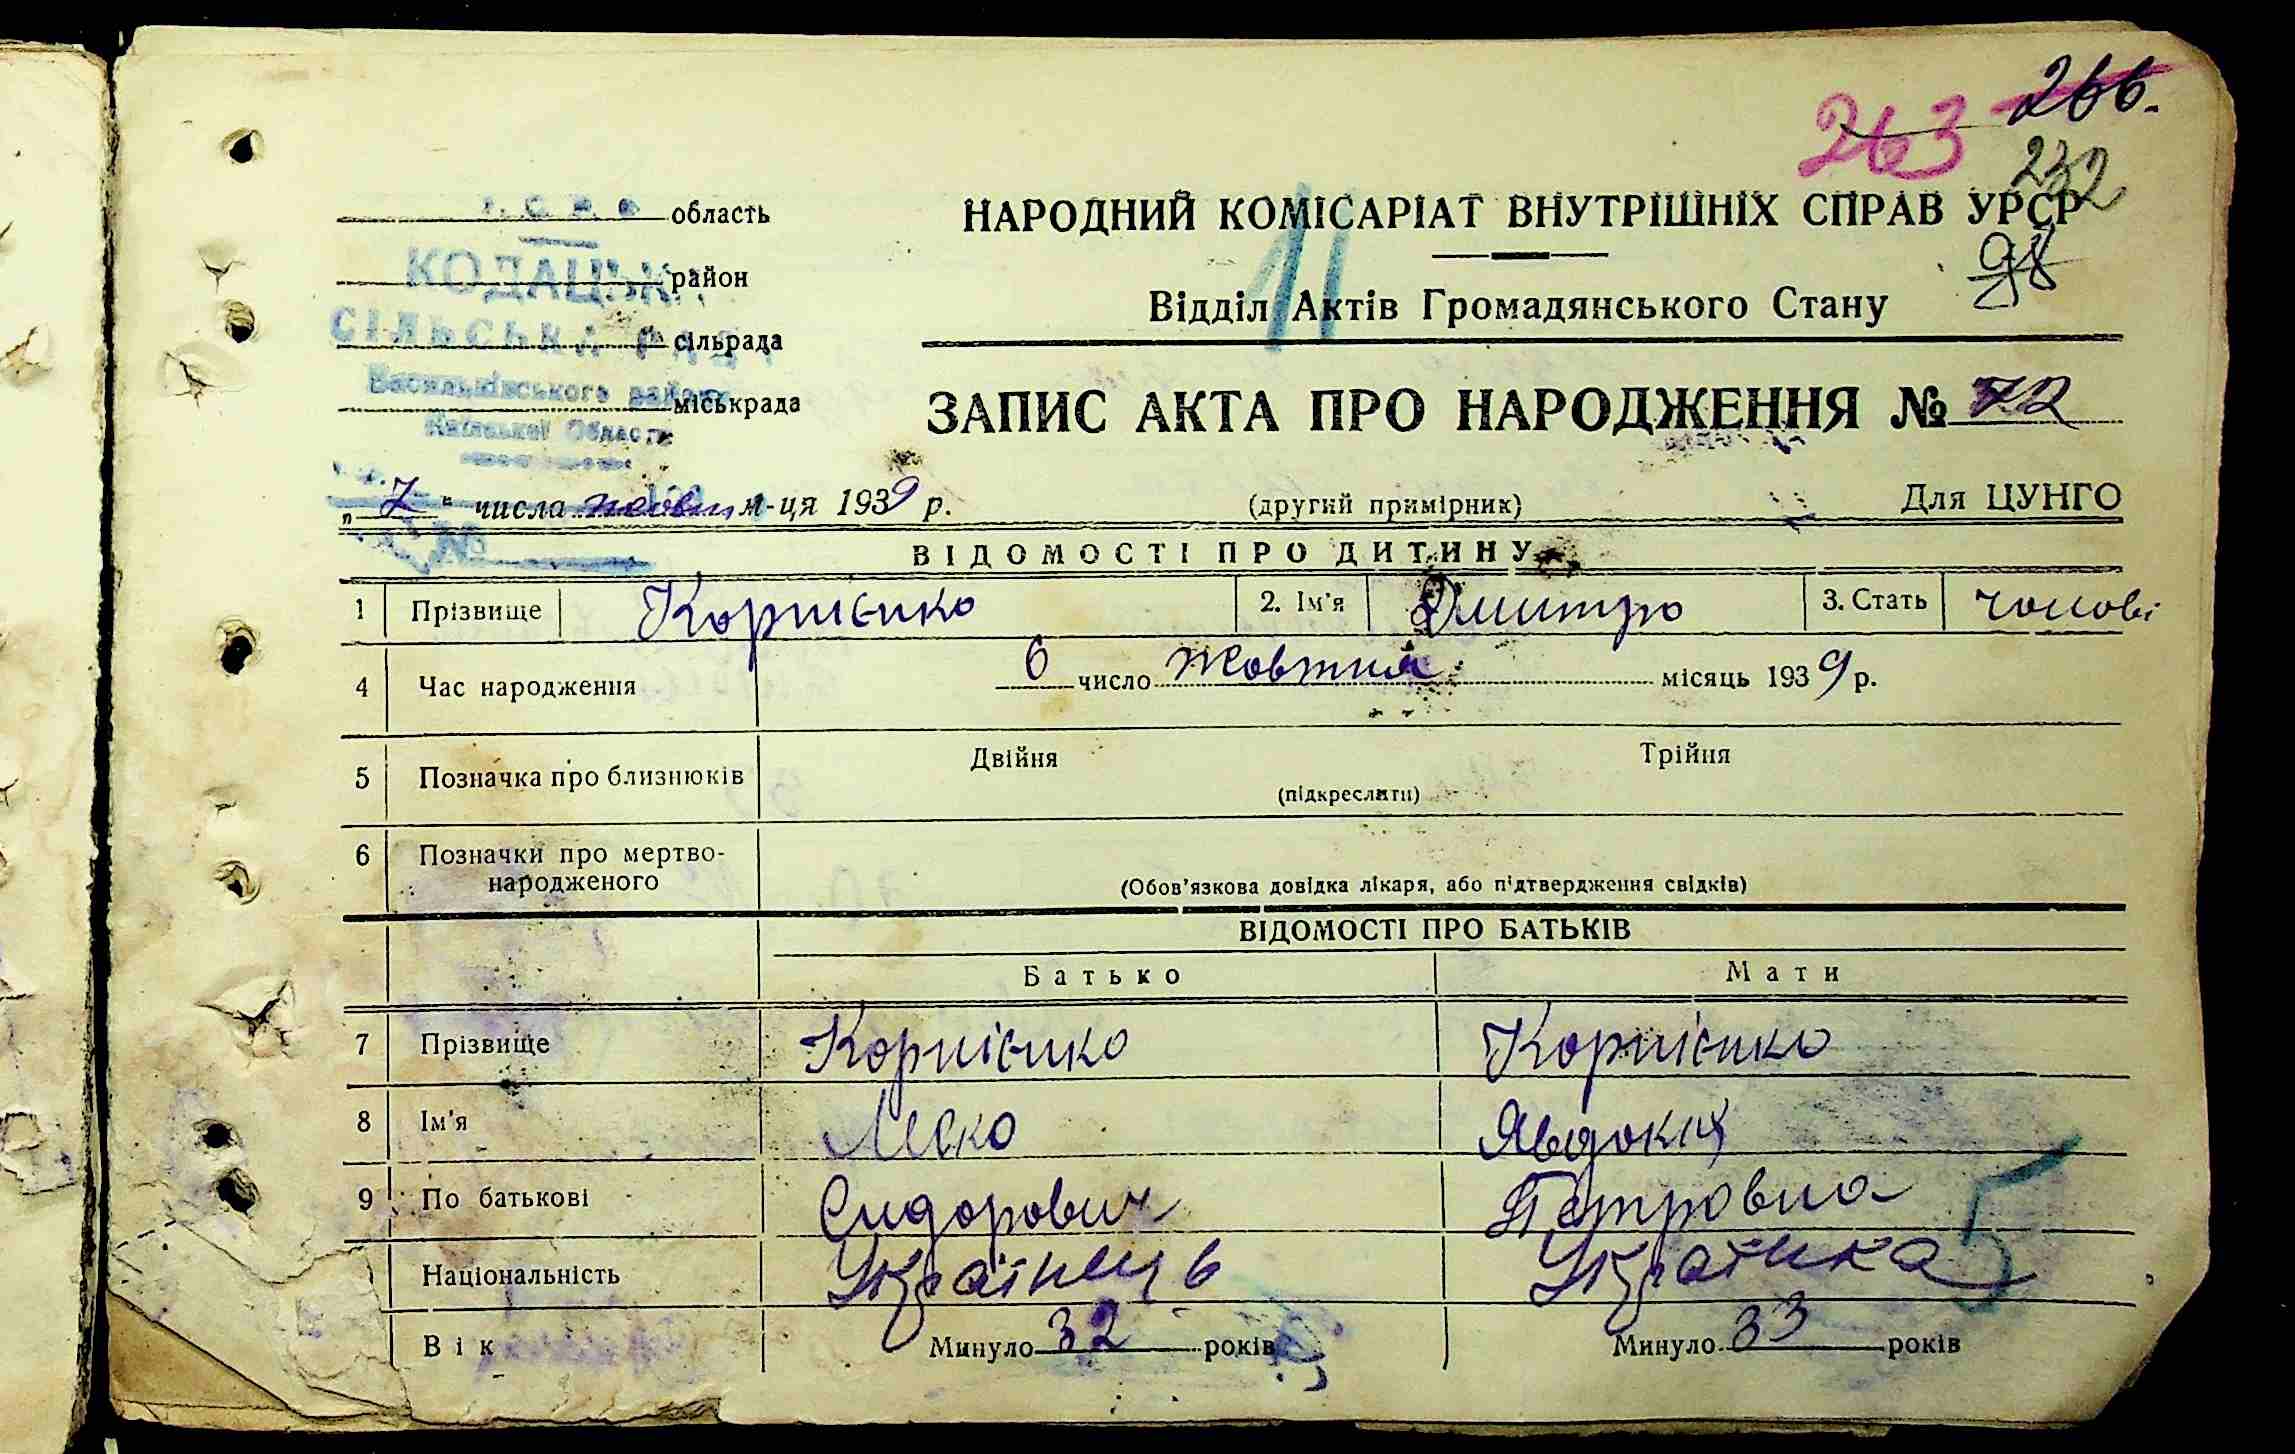 266.
263
232
98
У. С. Р. Р.
область
КОДАЦЬКА
район
СІЛЬСЬКА РАДА
сільрада
Васильківського району
міськрада
Київської Області
НАРОДНИЙ КОМІСАРІАТ ВНУТРІШНІХ СПРАВ УРСР
11
Відділ Актів Громадянського Стану
ЗАПИС АКТА ПРО НАРОДЖЕННЯ № 72
„ 7 " числа жовтн м-ця 1939 р.
(другий примірник)
Для ЦУНГО
№
ВІДОМОСТІ ПРО ДИТИНУ
1 Прізвище Корнієнко 2. Ім'я Дмитро 3. Стать чолові
4 Час народження 6 число жовтня місяць 1939 р.
5 Позначка про близнюків Двійня Трійня
(підкреслити)
6 Позначки про мертво-
народженого
(Обов'язкова довідка лікаря, або підтвердження свідків)
ВІДОМОСТІ ПРО БАТЬКІВ
Батько Мати
7 Прізвище Корнієнко Корнієнко
8 Ім'я Леско Явдокия
9 По батькові Сидорович Петровна
5
Національність Українець Українка
Вік Минуло 32 років Минуло 33 років